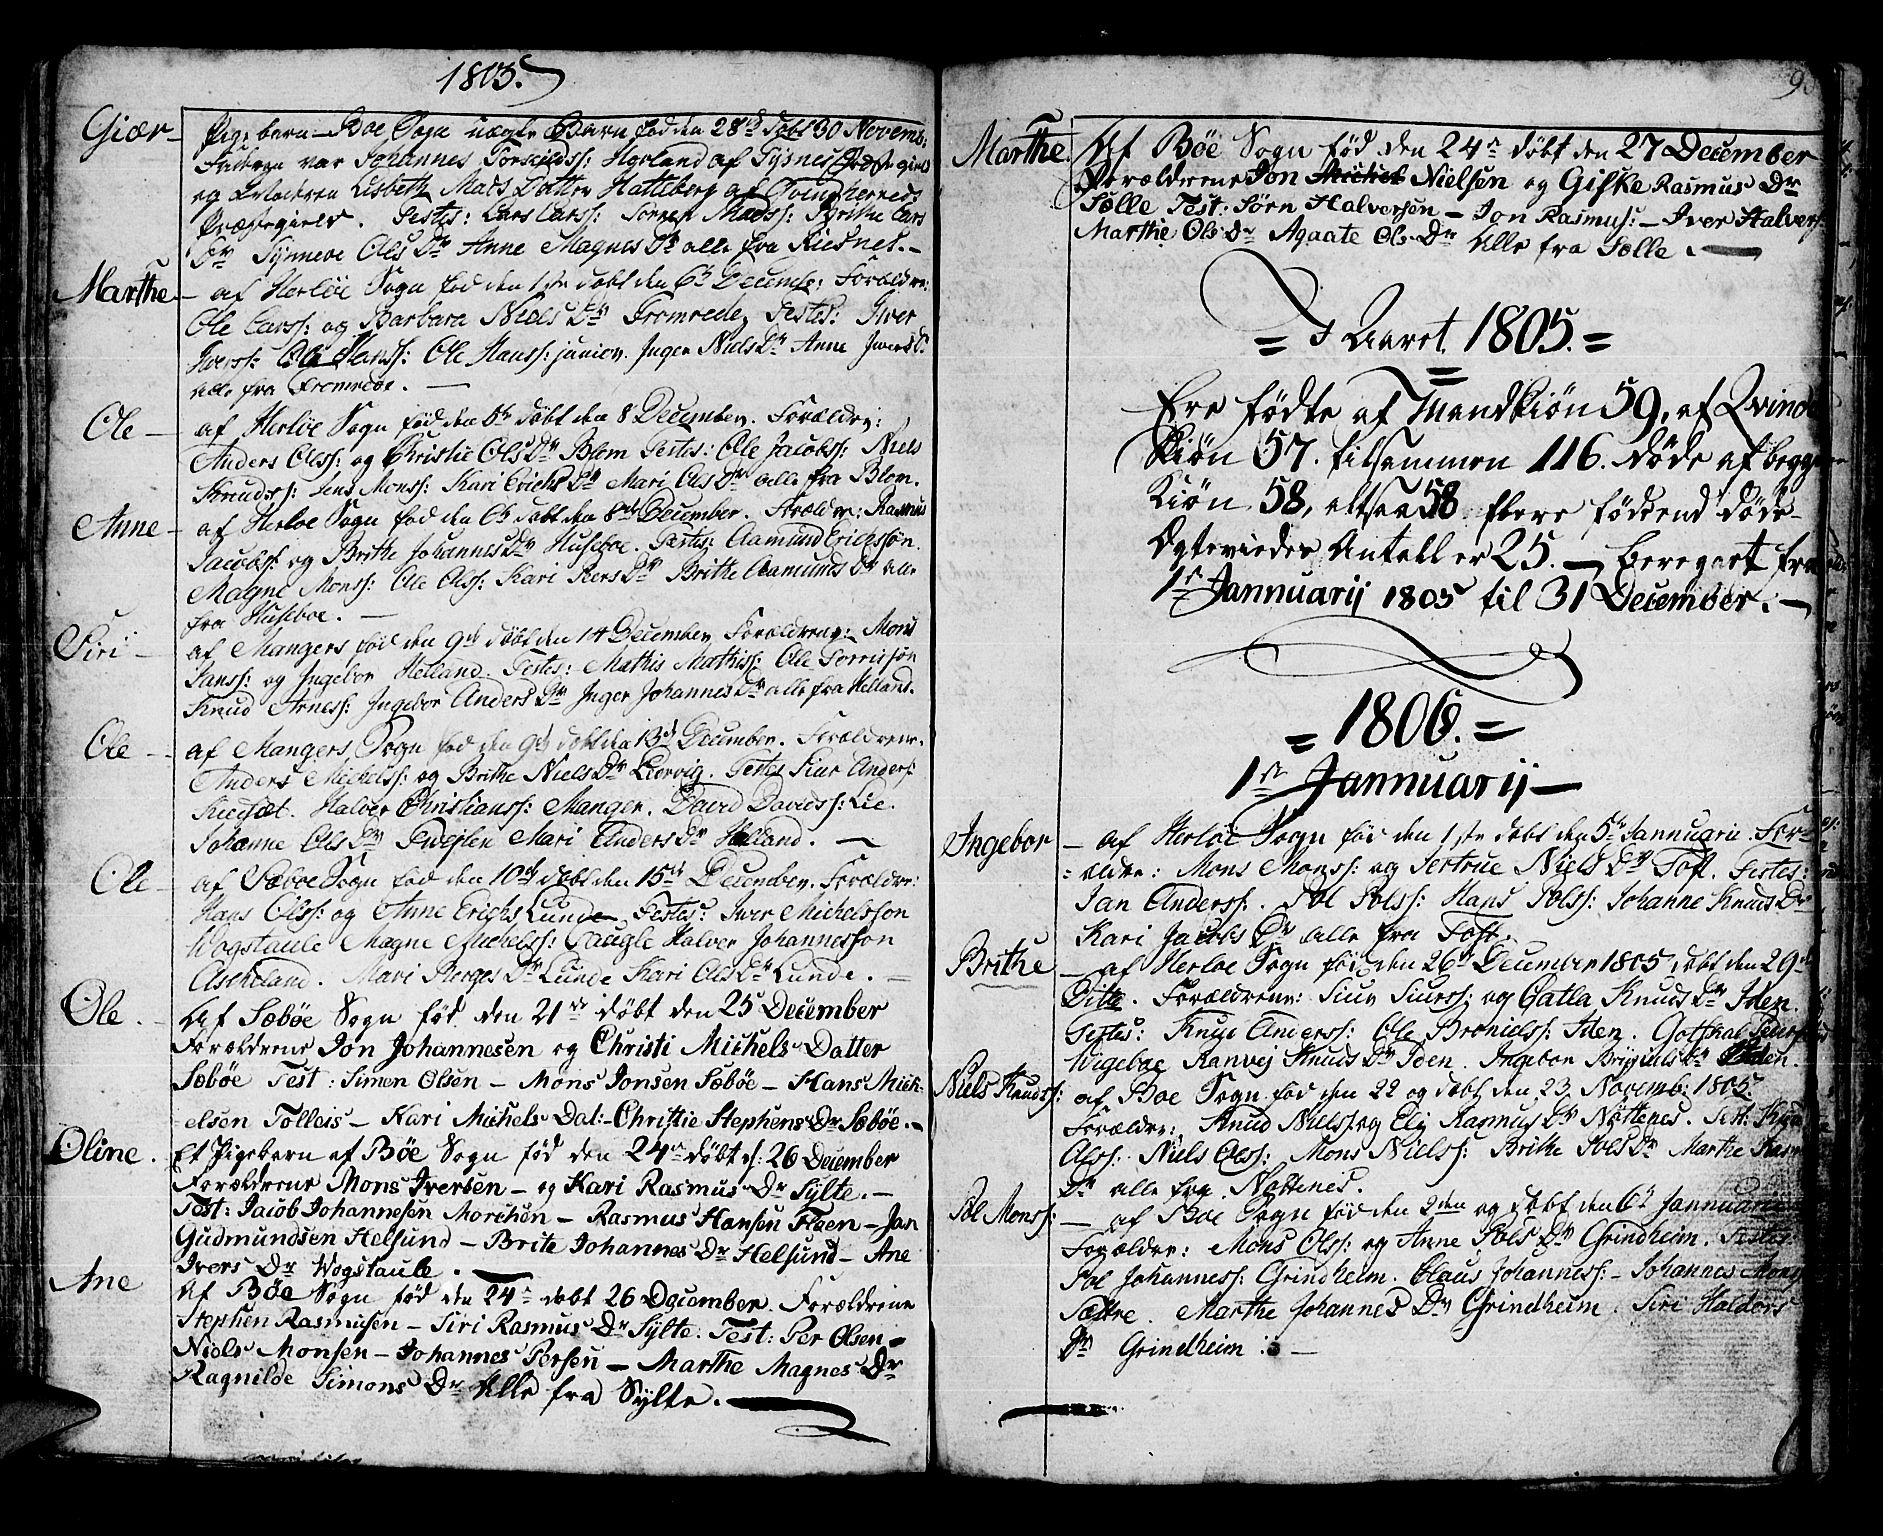 1805.
Giær - Pigebarn - Boe Sogn uægte Barn fød den 28d døbt 30 Novemb:
Faderen var Johannes Torkildss: Hopland af
og Moderen Lisbeth Mads Datter Hatteberg af Qvindherreds
Præstegield. Testes: Lars Larss: Madss: Brithe Lars
Dr Synneve Ols Dr Anne Magnes Dr alle fra Risnes. -
Marthe - af Herløe Sogn fød den 1ste døbt den 6d Decemb: Foræld​re:
Ole Larss: og Barbara Niels Dr Fromrede, Testes: Iver
Iverss: Ole Hanss: Ole Hanss: junior. Inger Niels Dr Anne Ivers D.
alle fra Fromrede. -
Ole - af Herløe Sogn fød den døbt den 8 December. Forældre:
Anders Olss: og Christie Ols Dr Blom Testes: Ole Jacobss: Niels
Knudss: Jens Monss: Kari Erichs Dr Mari Ols Dr alle fra Blom.
Anne - af Herloe Sogn fød den 6d døbt den 8de December. Forældre: Rasmus
Jacobss: og Brithe Johannes Dr Huseboe. Testes: Aamund Erichssøn.
Magne Monss: Ole Olss: Kari Peers Dr Brithe Aamunds Dr alle
fra Huseboe. -
Siri - af Mangers fød den 9de døbt den 14 December Forældrene: Mons
Janss: og Ingebor Helland. Testes: Mathis Mathiss: Ole
Knud Arness: Ingebor Anders Dr Inger Johannes Dr alle fra Helland.
Ole - af Mangers Sogn fød den 9d døbt den 13d December. Forældrene.
Anders Michelss: og Brithe Niels Dr Testes Siur Anderss:
Halver Christianss: Manger. David Davidss: Lie.
Johanne Ols Dr Mari Anders Dr Helland. -
Ole - af Sæboe Sogn fød den 10de døbt den 15de December. Forældre:
Hans Olss: og Anne Erichs Lunde Testes: Iver Michelssøn
Wogstaule Magne Michelss: Halver Johannessøn
Mari Børges Dr Lunde Kari Ols Dr Lunde. -
Ole. - Af Sæbøe Sogn fød den 21de døbt den 25 December
Forældrene Jon Johannesen og Christi Michels Datter
Sæbøe Test: Simen Olsen - Mons Jonsen Sæbøe - Hans Mich-
elsen Tolleis - Kari Michels Dat: - Christie Stephens Dr Sæbøe. -
Oline. Et Pigebarn af Bøe Sogn fød den 24de døbt d: 26 December
Forældrene Mons Iversen - og Kari Rasmus Dr Sylte. -
Test: Jacob Johannesen Morchen - Rasmus Hansen Floen - Jan
Gudmundsen Helsund - Brite Johannes Dr Helsund - Ane
Ivers Dr Wogstaule. -
Ane Af Bøe Sogn fød den 24de døbt 26 December. Forældrene
Stephen Rasmusen - Siri Rasmus Dr Sylte. Test: Per Olsen -
Niels Monsen - Johannes Persen - Marthe Magnes Dr
Ragnilde Simons Dr Alle fra Sylte.
9
Marthe. Af Bøe Sogn fød den 24de døbt den 27 December
Forældrene Jon Michel Nielsen og Giske Rasmus Dr
Sølle Test: Sørn Halversen - Jon Rasmus: - Iver Halvers:
Marthe Ols Dr Agaate Ols Dr Alle fra Sølle.
= I Aaret 1805. =
=
Ere fødte af Mandkiøn 59, af Qvinde
Kiøn 57. tilsammen 116. døde af begge
Kiøn 58, altsaa 58 flere fødte end døde
Ægtevieder Antall er 25. - beregnet fra
1ste Jannuarij 1805 til 31 December. -
= 1806. =
1ste Jannuarij -
Ingebor - af Herløe Sogn fød den 1ste døbt den 5te Jannuarii. For-
= ældre: Mons Monss: og Sertrue Niels Dr Toft. Testes:
Jan Anderss: Pol Polss: Hans Polss: Johanne Knuds Dr
Kari Jacobs Dr alle fra Toft.
Brithe - af Herloe Sogn fød den 26de December 1805 døbt den 29de
Ditto. Forældrene: Siur Siurss: og Gatla Knuds Dr Iden.
Testes: Knud Anderss: Ole Iden.
Wigeboe Ranvej Knuds Dr Iden. Ingebor Dr Iden.
Niels Knuds: af Boe Sogn fød den 22 og døbt den 23 Novemb: 1805
Forældre: Knud Nielss: og Eli Rasmus Dr Nøttenes. Test: Knud
Olss: Niels Olss: Mons Nielss: Brithe Pols Dr Marthe
Dr alle fra Nøttenes.
Pol Monss: - af Boe Sogn fød den 2den og døbt den 6te Jannuarii
Forældre: Mons Olss: og Anne Pols Dr Grindheim. Testes
Pol Johanness: Grindheim. Claus Johanness: - Johannes Mons
Sættre. Marthe Johannes Dr Grindheim. Siri Haldors
Dr Grindheim : -